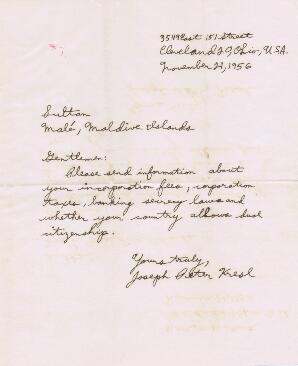 3549 East 151 Street
Cleveland 20, Ohio, U.S.A.
November 23, 1956
Sultan
Malé, Maldive Islands
Gentlemen:
Please send information about
your incorporation fees, corporation
taxes, banking secrecy laws and
whether your country allows dual
citizenship.
Yours truly,
Joseph Peter Kresl